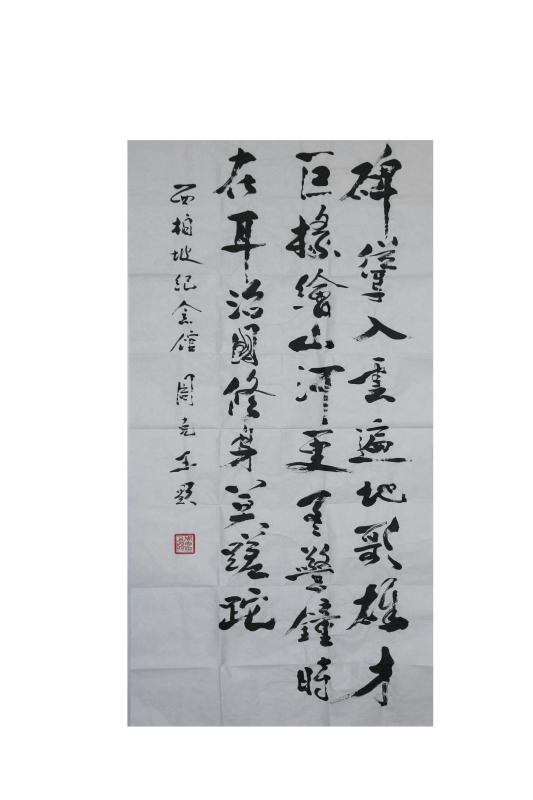 碑聳入雲遍地歌雄才
巨椽繪山河更有警鐘時
在耳治國修身莫蹉跎
西柏坡紀念館 周克玉題